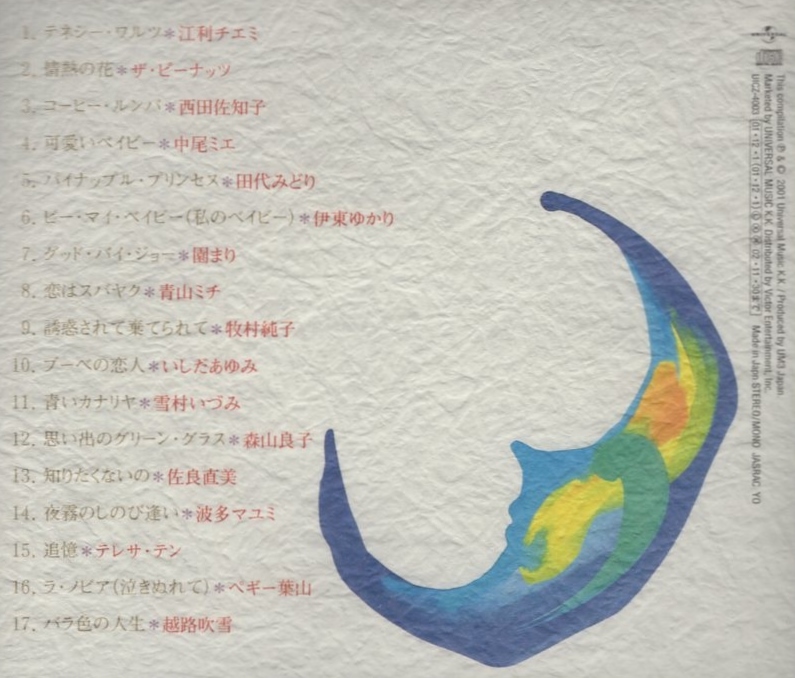 1. テネシー・ワルツ*江利チエミ
2. 情熱の花*ザ・ピーナッツ
3. コーヒー・ルンバ*西田佐知子
4. 可愛いベイビー*中尾ミエ
5. パイナップル・プリンセス*田代みどり
6. ビー・マイ・ベイビー(私のベイビー)*伊東ゆかり
7. グッド・バイ・ジョー*園まり
8. 恋はスバヤク*青山ミチ
9. 誘惑されて棄てられて*牧村純子
10. ブーベの恋人*いしだあゆみ
11. 青いカナリヤ*雪村いづみ
12. 思い出のグリーン・グラス*森山良子
13. 知りたくないの*佐良直美
14. 夜霧のしのび逢い*波多マユミ
15. 追憶*テレサ・テン
16. ラ・ノビア(泣きぬれて)*ペギー葉山
17. バラ色の人生*越路吹雪
This compilation ℗ & © 2001 Universal Music K.K. / Produced by UM3 Japan
Marketed by UNIVERSAL MUSIC K.K. Distributed by Victor Entertainment, Inc.
UICZ-4003 Made in Japn STEREO/MONO JASRAC YO